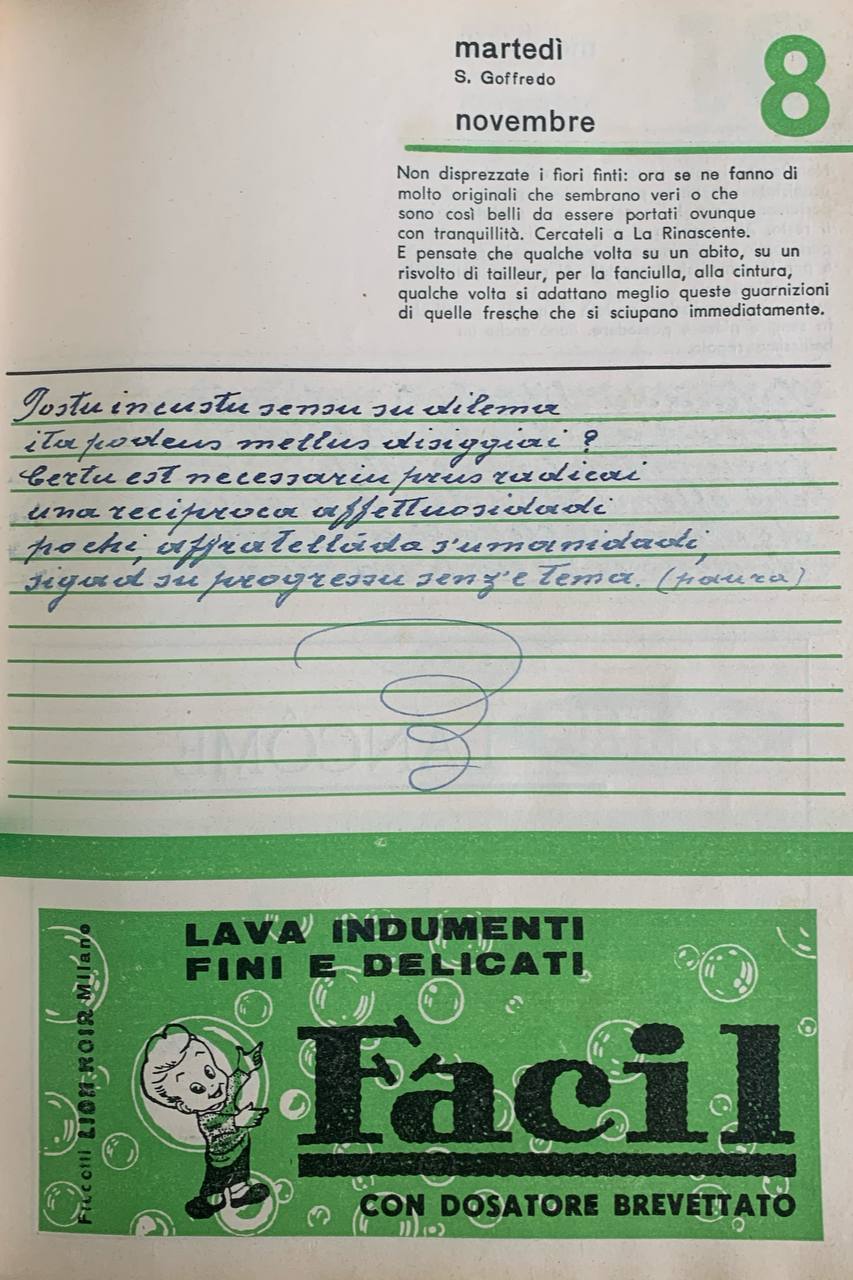 martedì
S. Goffredo
novembre
8
Non disprezzate i fiori finti: ora se ne fanno di
molto originali che sembrano veri o che
sono così belli da essere portati ovunque
con tranquillità. Cercateli a La Rinascente.
E pensate che qualche volta su un abito, su un
risvolto di tailleur, per la fanciulla, alla cintura,
qualche volta si adattano meglio queste guarnizioni
di quelle fresche che si sciupano immediatamente.
Postu in custu sensu su dilema
ita podeus mellus disiggiai ?
Certu est necessariu prus radicai
una reciproca affettuosidadi
po chi, affratelláda s'umanidadi,
sigad su progressu senz'e tema. (paura)
LAVA INDUMENTI
FINI E DELICATI
LION NOIR Milano
Facil
CON DOSATORE BREVETTATO